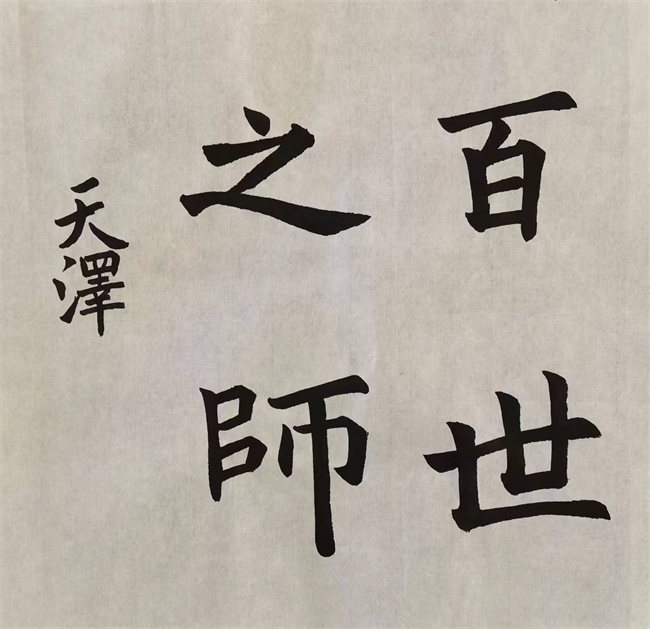 百世
之師
天澤